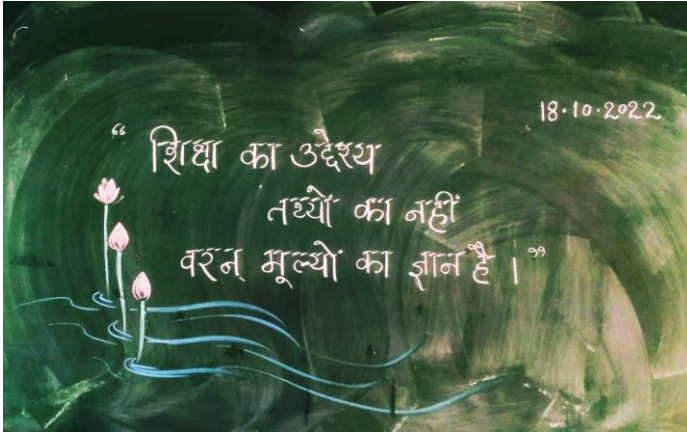 18.10.2022
“ शिक्षा का उद्देश्य
तथ्यों का नहीं
वरन् मूल्यों का ज्ञान है । ”